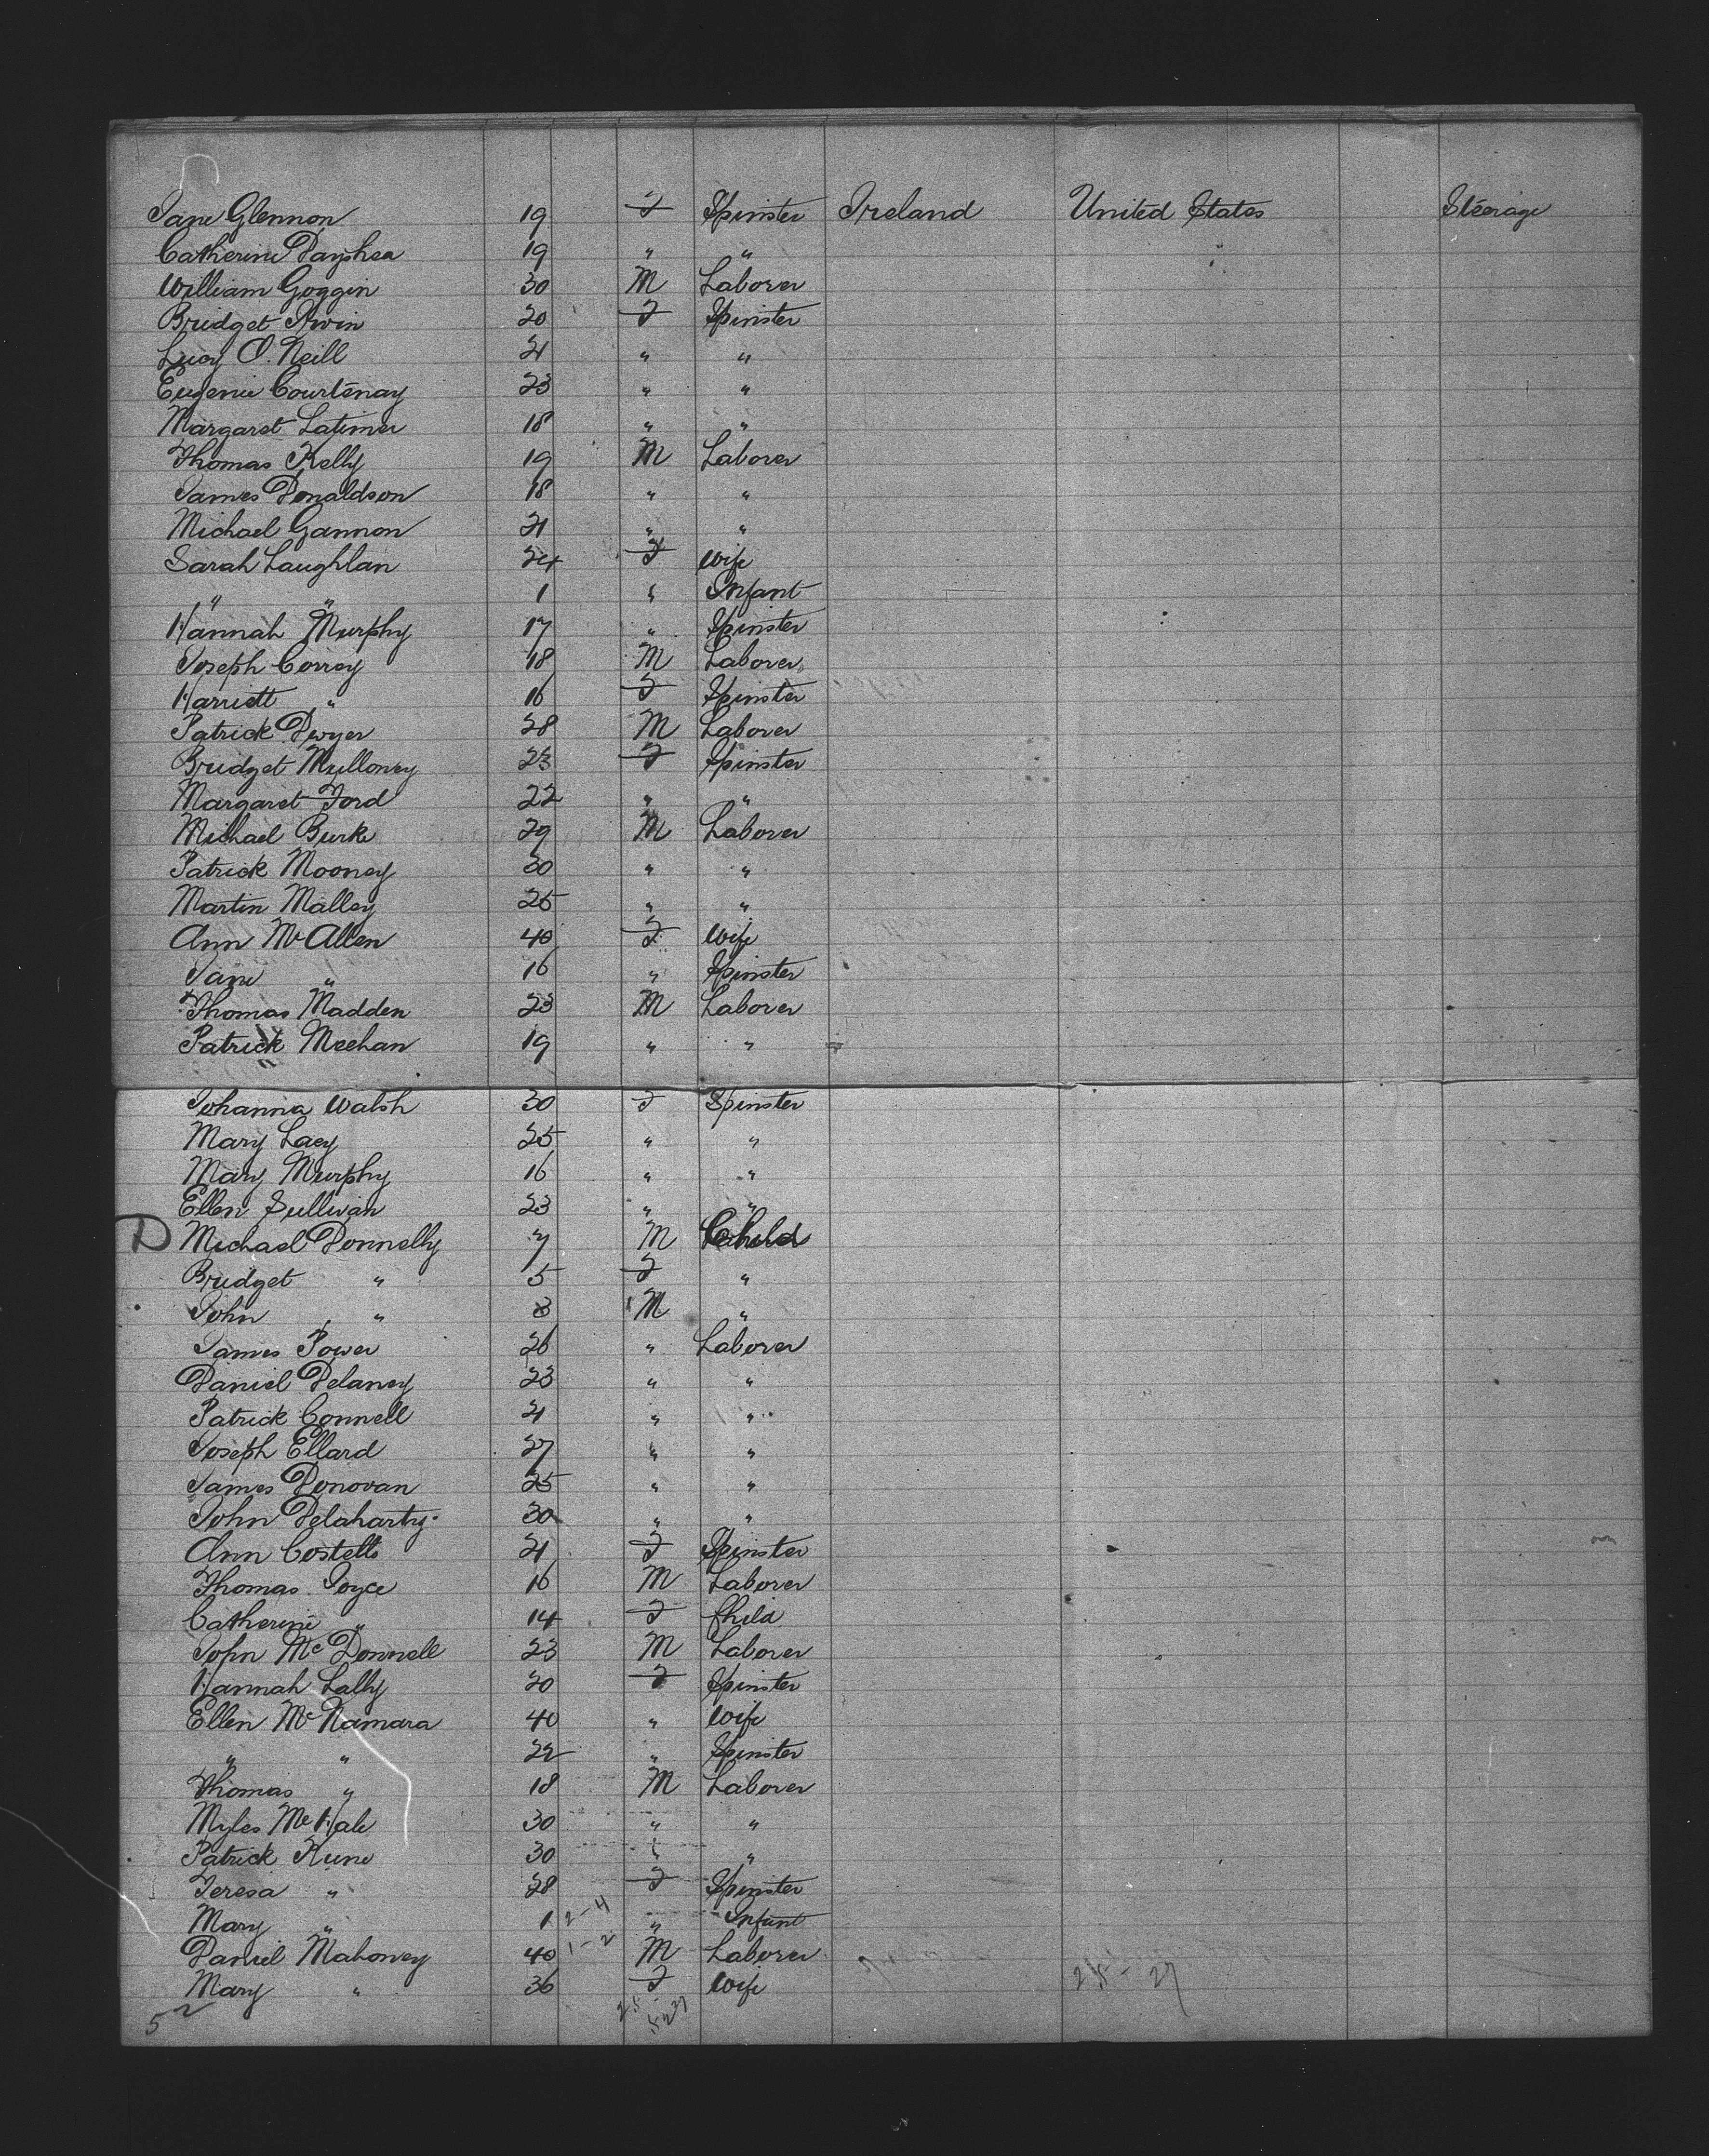 Jane Glennon 19 F Spinster Ireland United States Steerage
Catherine 19 " "
William Goggin 30 M Laborer
Bridget Irwin 20 F Spinster
Lucy O. Neill 21 " "
Eugenie Courtenay 23 " "
Margaret Latimer 18 " "
Thomas Kelly 19 M Laborer
James Donaldson 18 " "
Michael Gannon 21 " "
Sarah Laughlan 24 F Wife
" " 1 " Infant
Hannah Murphy 17 " Spinster
Joseph Corry 18 M Laborer
Harriett " 16 F Spinster
Patrick Dwyer 28 M Laborer
Bridget Mulloney 23 F Spinster
Margaret Ford 22 " "
Michael Burke 29 M Laborer
Patrick Mooney 30 " "
Martin Malley 25 " "
Ann McAllen 40 F Wife
Jane " 16 " Spinster
Thomas Madden 23 M Laborer
Patrick Meehan 19 " "
Johanna Walsh 30 F Spinster
Mary Lacy 25 " "
Mary Murphy 16 " "
Ellen Sullivan 23 " "
D Michael Donnelly 7 M Child
Bridget " 5 F "
John " 3 M "
James Power 26 " Laborer
Daniel Delaney 23 " "
Patrick Connell 21 " "
Joseph Ellard 27 " "
James Donovan 25 " "
John Delaharty 30 " "
Ann Costello 21 F Spinster
Thomas Joyce 16 M Laborer
Catherine " 14 F Child
John McDonnell 23 M Laborer
Hannah Lally 20 F Spinster
Ellen McNamara 40 " Wife
" " 22 " Spinster
Thomas " 18 M Laborer
Myles McHale 30 " "
Patrick Kune 30 " "
Teresa " 28 F Spinster
Mary " 1 2-4 " Infant
Daniel Mahoney 40 1-2 M Laborer
Mary " 36 F Wife 25-27
52